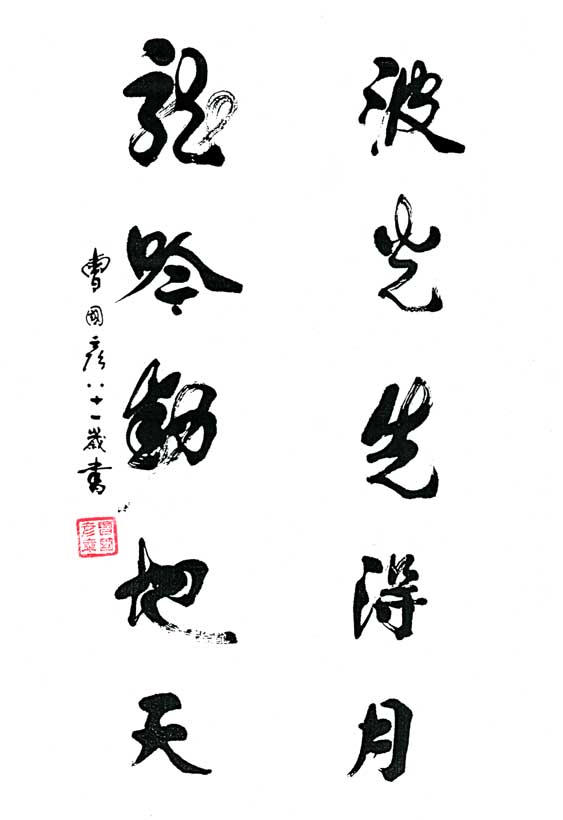 波光先得月
龍吟動地天
曹國彥八十一歲書